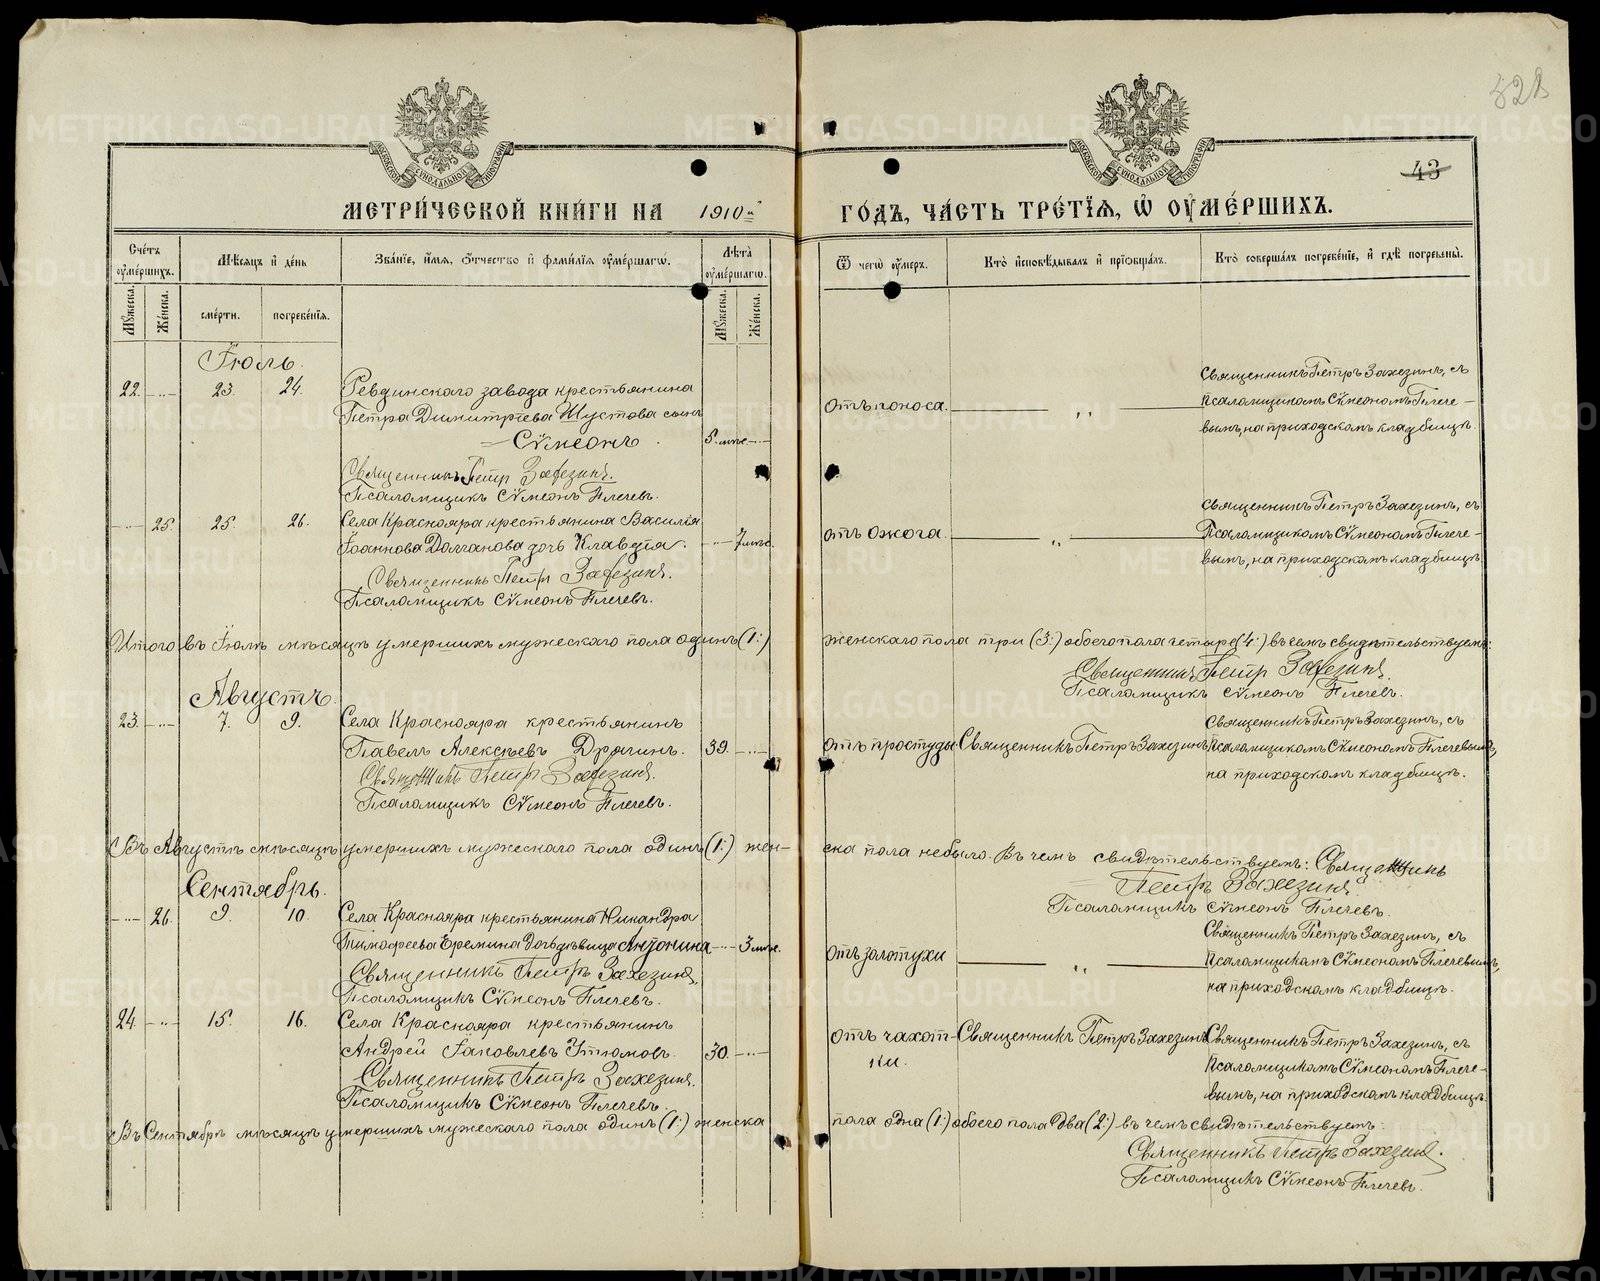 328
43
МЕТРИ́ЧЕСКОЙ КНИ́ГИ НА 1910й ГО́ДЪ, ЧА́СТЬ ТРЕ́ТІѦ, Ѿ ОУ҆МЕ́РШИХЪ.
Сче́тъ оу҆ме́ршихъ.
Мѣ́сѧцъ и҆ де́нь
Зва́нїе, и҆́мѧ, ѻ҆́тчество и҆ фами́лїѧ оу҆ме́ршагѡ.
Лѣ́та оу҆ме́ршагѡ.
Ѿ чегѡ̀ оу҆́меръ.
Кто̀ и҆сповѣ́дывалъ и҆ прїѡбща́лъ.
Кто̀ соверша́лъ погребе́нїе, и҆ гдѣ̀ погребены̀.
Мꙋ́жеска.
Же́нска.
сме́рти.
погребе́нїѧ.
Мꙋ́жеска.
Же́нска.
Іюль.
22. -..- 23. 24. Ревдинскаго завода крестьянина
Петра Димитріева Шустова сынъ
Сѷмеонъ. 5. мѣс. -..-
отъ поноса. — „ —
Священникъ Петръ Захезинъ, съ
псаломщикомъ Сѷмеономъ Плече-
вымъ, на приходскомъ кладбищѣ.
Священникъ Петръ Захезинъ.
Псаломщикъ Сѷмеонъ Плечевъ.
-..- 25. 25. 26. Села Краснояра крестьянина Василія
Іоаннова Долганова дочь Клавдія. -..- 7 мѣс.
отъ ожога. — „ —
Священникъ Петръ Захезинъ, съ
Псаломщикомъ Сѷмеономъ Плече-
вымъ, на приходскомъ кладбищѣ.
Священникъ Петръ Захезинъ.
Псаломщикъ Сѷмеонъ Плечевъ.
Итого въ Іюлѣ мѣсяцѣ умершихъ мужескаго пола одинъ (1:) женскаго пола три (3:) обоего пола четыре (4:) въ чемъ свидѣтельствуемъ:
Священникъ Петръ Захезинъ.
Псаломщикъ Сѷмеонъ Плечевъ.
Августъ.
23. -..- 7. 9. Села Краснояра крестьянинъ
Павелъ Алексѣевъ Дрягинъ. 39. -..-
отъ простуды
Священникъ Петръ Захезинъ
Священникъ Петръ Захезинъ, съ
псаломщикомъ Сѷмеономъ Плечевымъ,
на приходскомъ кладбищѣ.
Священникъ Петръ Захезинъ.
Псаломщикъ Сѷмеонъ Плечевъ.
Въ Августѣ мѣсяцѣ умершихъ мужескаго пола одинъ (1:) жен-
ска пола небыло. Въ чемъ свидѣтельствуемъ: Священникъ
Петръ Захезинъ
Псаломщикъ Сѷмеонъ Плечевъ.
Сентябрь.
-..- 26. 9. 10. Села Краснояра крестьянина Никандра
Тимофеева Еремина дочь дѣвица Антонина -..- 3 мѣс.
отъ золотухи — „ —
Священникъ Петръ Захезинъ, съ
псаломщикомъ Сѷмеономъ Плечевымъ,
на приходскомъ кладбищѣ.
Священникъ Петръ Захезинъ.
Псаломщикъ Сѷмеонъ Плечевъ.
24. -..- 15. 16. Села Краснояра крестьянинъ
Андрей Іаковлевъ Утюмовъ. 30. -..-
отъ чахот-
ки.
Священникъ Петръ Захезинъ
Священникъ Петръ Захезинъ, съ
псаломщикомъ Сѷмеономъ Плече-
вымъ, на приходскомъ кладбищѣ.
Священникъ Петръ Захезинъ.
Псаломщикъ Сѷмеонъ Плечевъ.
Въ Сентябрѣ мѣсяцѣ умершихъ мужескаго пола одинъ (1:) женска пола одна (1:) обоего пола два (2:) въ чемъ свидѣтельствуемъ:
Священникъ Петръ Захезинъ.
Псаломщикъ Сѷмеонъ Плечевъ.
METRIKI.GASO-URAL.RU